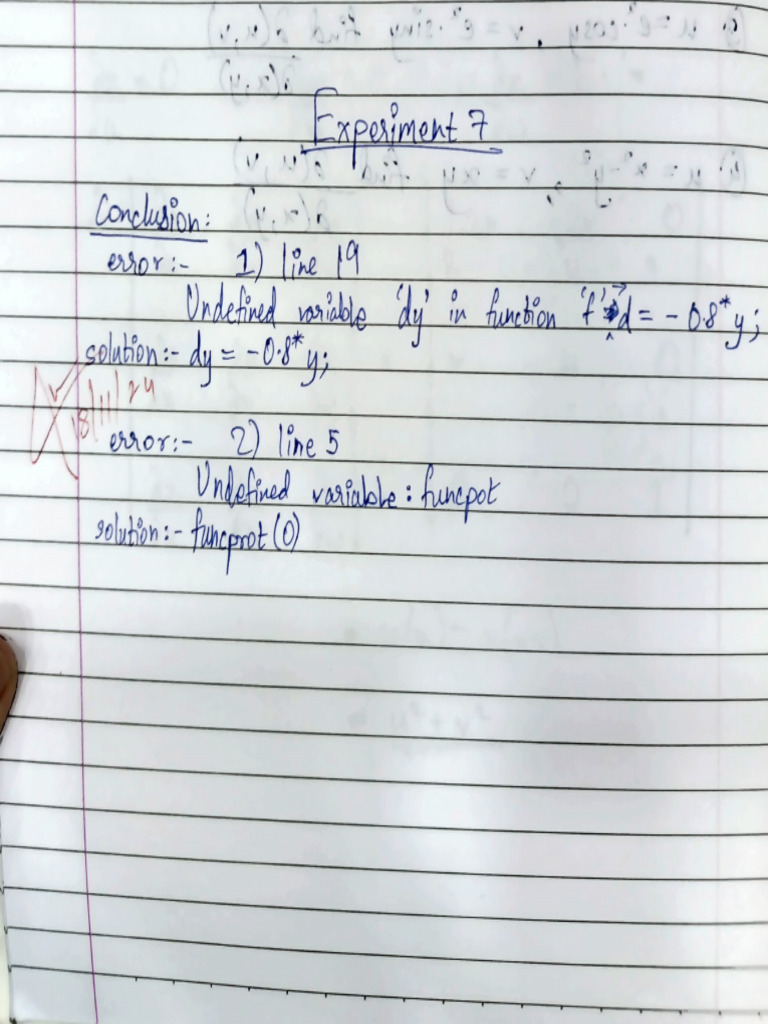 Experiment 7
Conclusion:
error:- 1) line 19
Undefined variable 'dy' in function 'f' → d = - 0.8* y;
solution:- dy = -0.8* y;
18/11/24
error:- 2) line 5
Undefined variable : funcpot
solution:- funcprot (0)